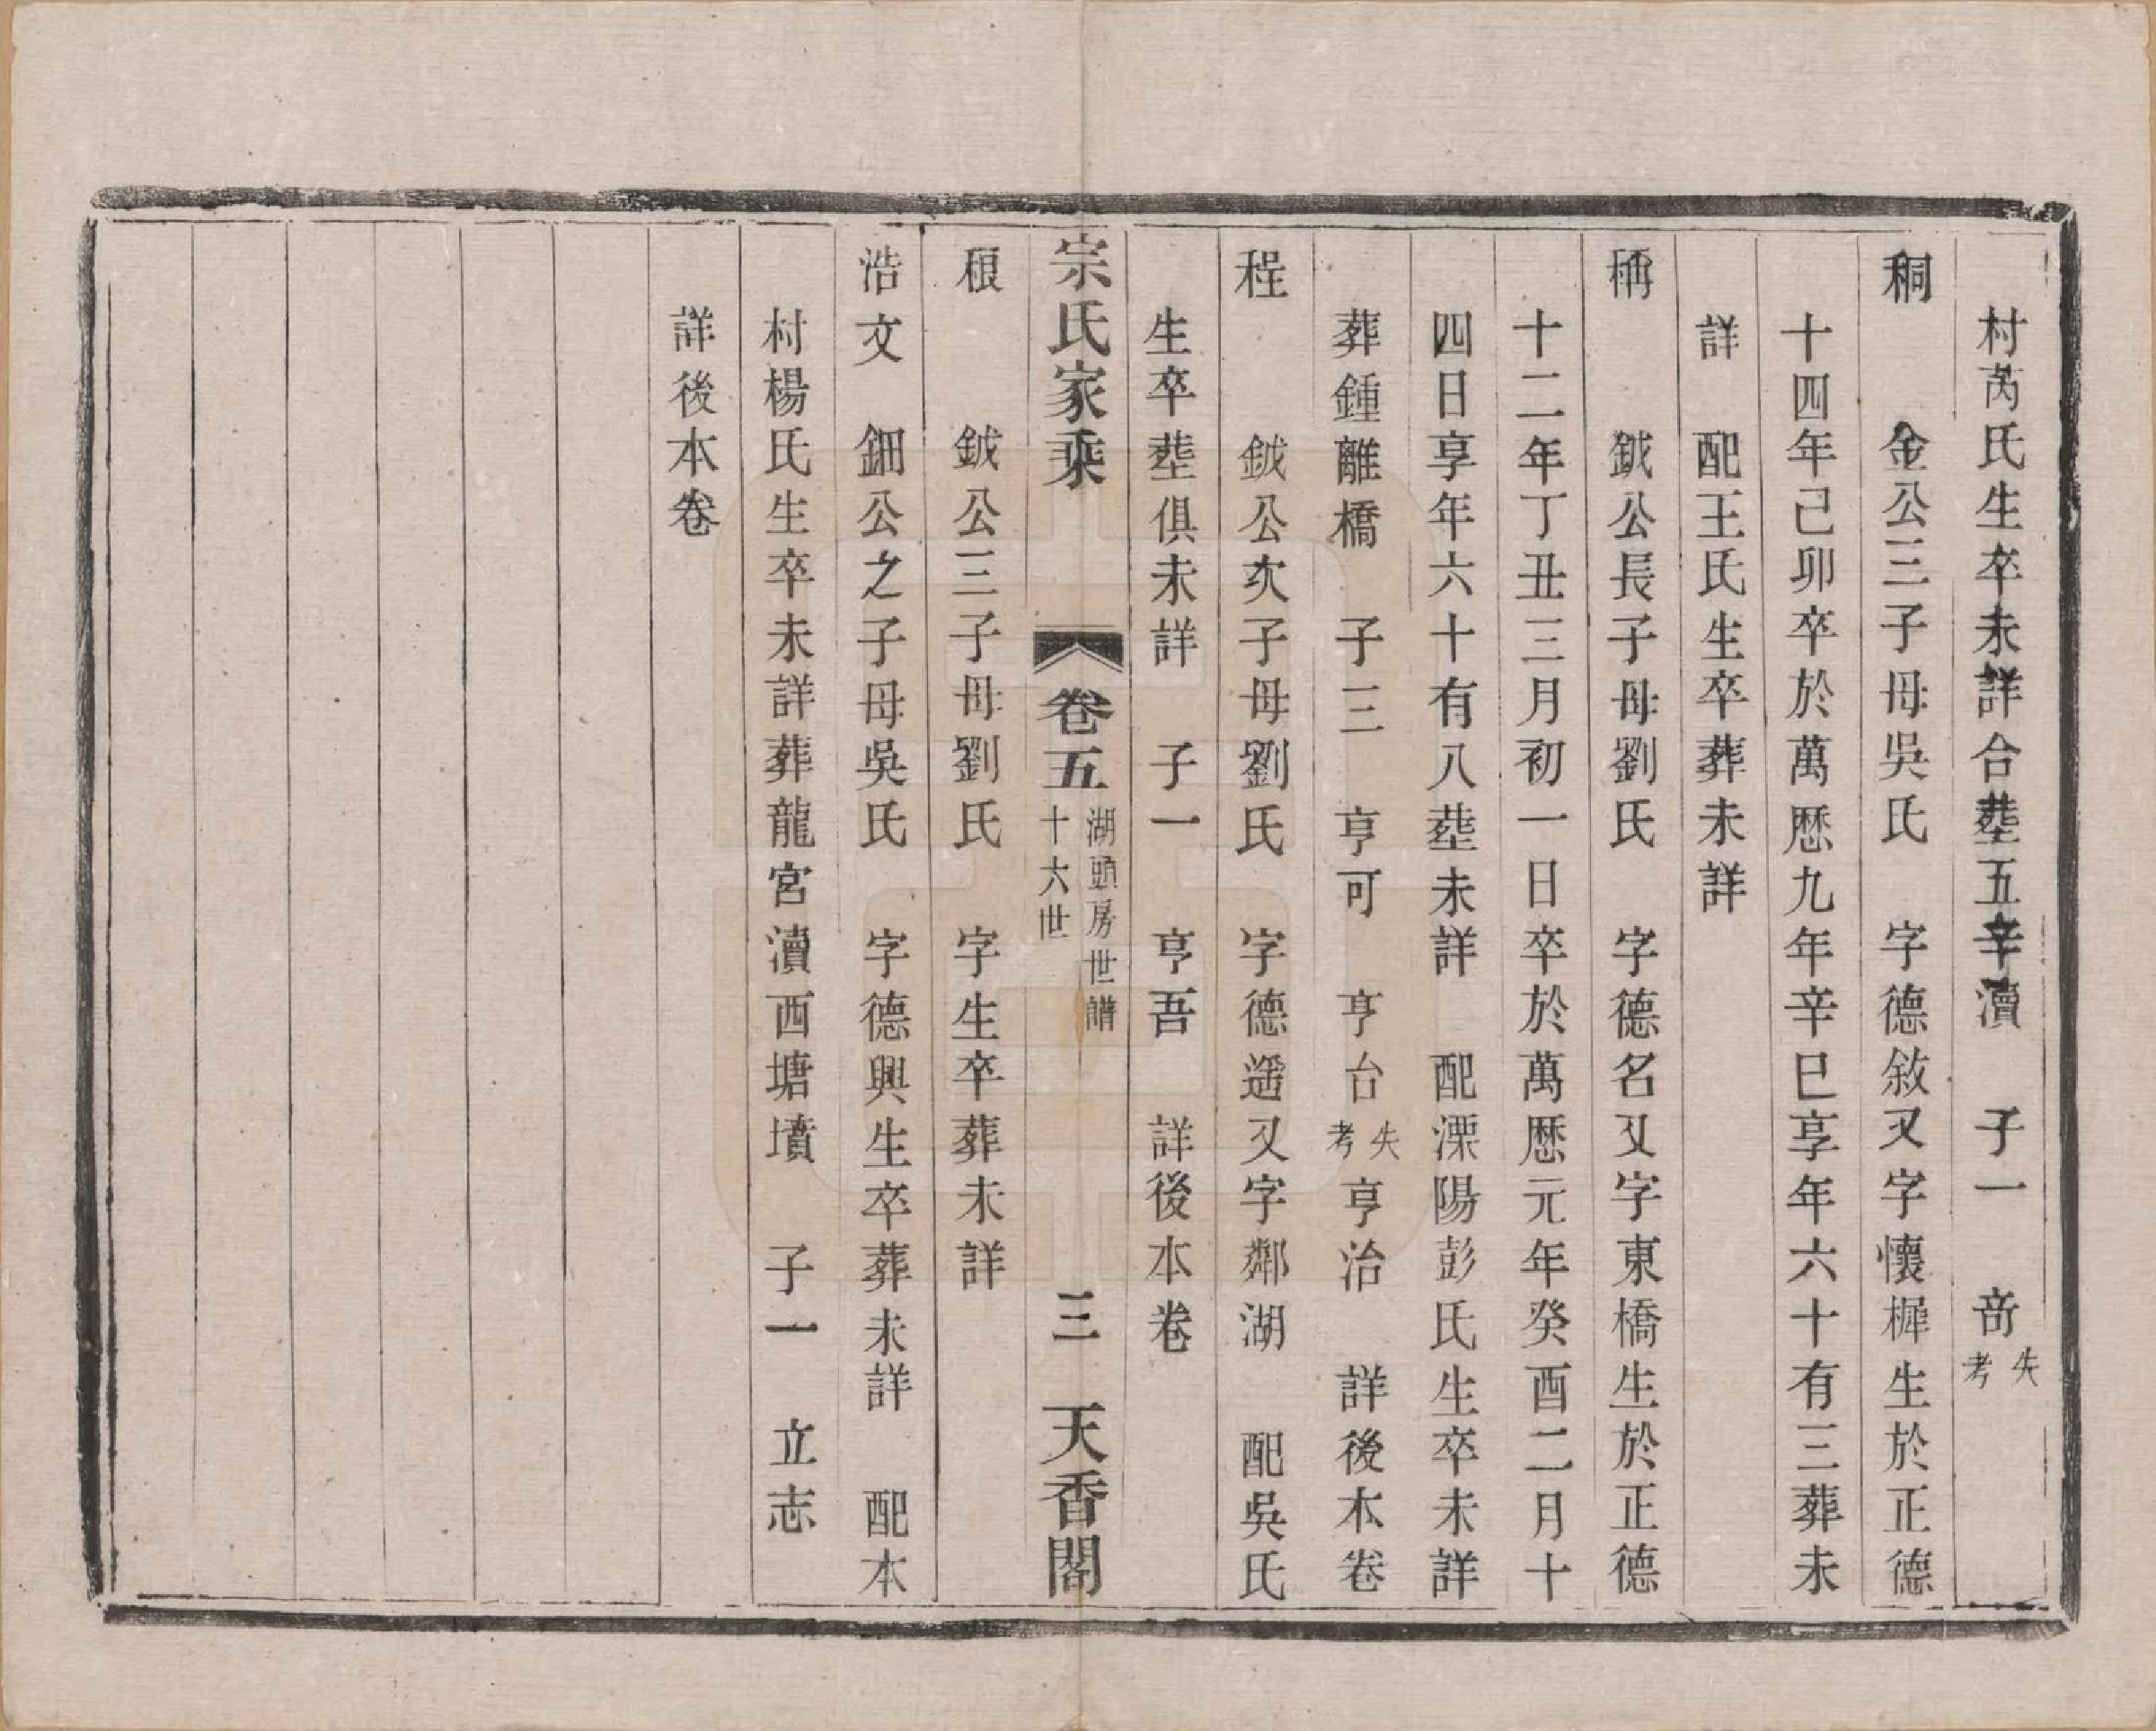 村芮氏生卒未詳合塟五辛瀆　子一　竒失考
秱　金公三子母吳氏　字德敘又字懷樨生於正德
十四年己卯卒於萬歷九年辛巳享年六十有三葬未
詳　配王氏生卒葬未詳
稱　鉞公長子母劉氏　字德名又字東橋生於正德
十二年丁丑三月初一日卒於萬歷元年癸酉二月十
四日享年六十有八塟未詳　配溧陽彭氏生卒未詳
葬鍾離橋　子三　亨可　亨台失考亨治　詳後本卷
程　鉞公次子母劉氏　字德遥又字鄰湖　配吳氏
生卒塟俱未詳　子一　亨吾　詳後本卷
宗氏家乘　卷五　湖頭房世譜　十六世　三　天香閣
稂　鉞公三子母劉氏　字生卒葬未詳
浩文　鈿公之子母吳氏　字德興生卒葬未詳　配本
村楊氏生卒未詳葬龍宮瀆西塘墳　子一　立志
詳後本卷